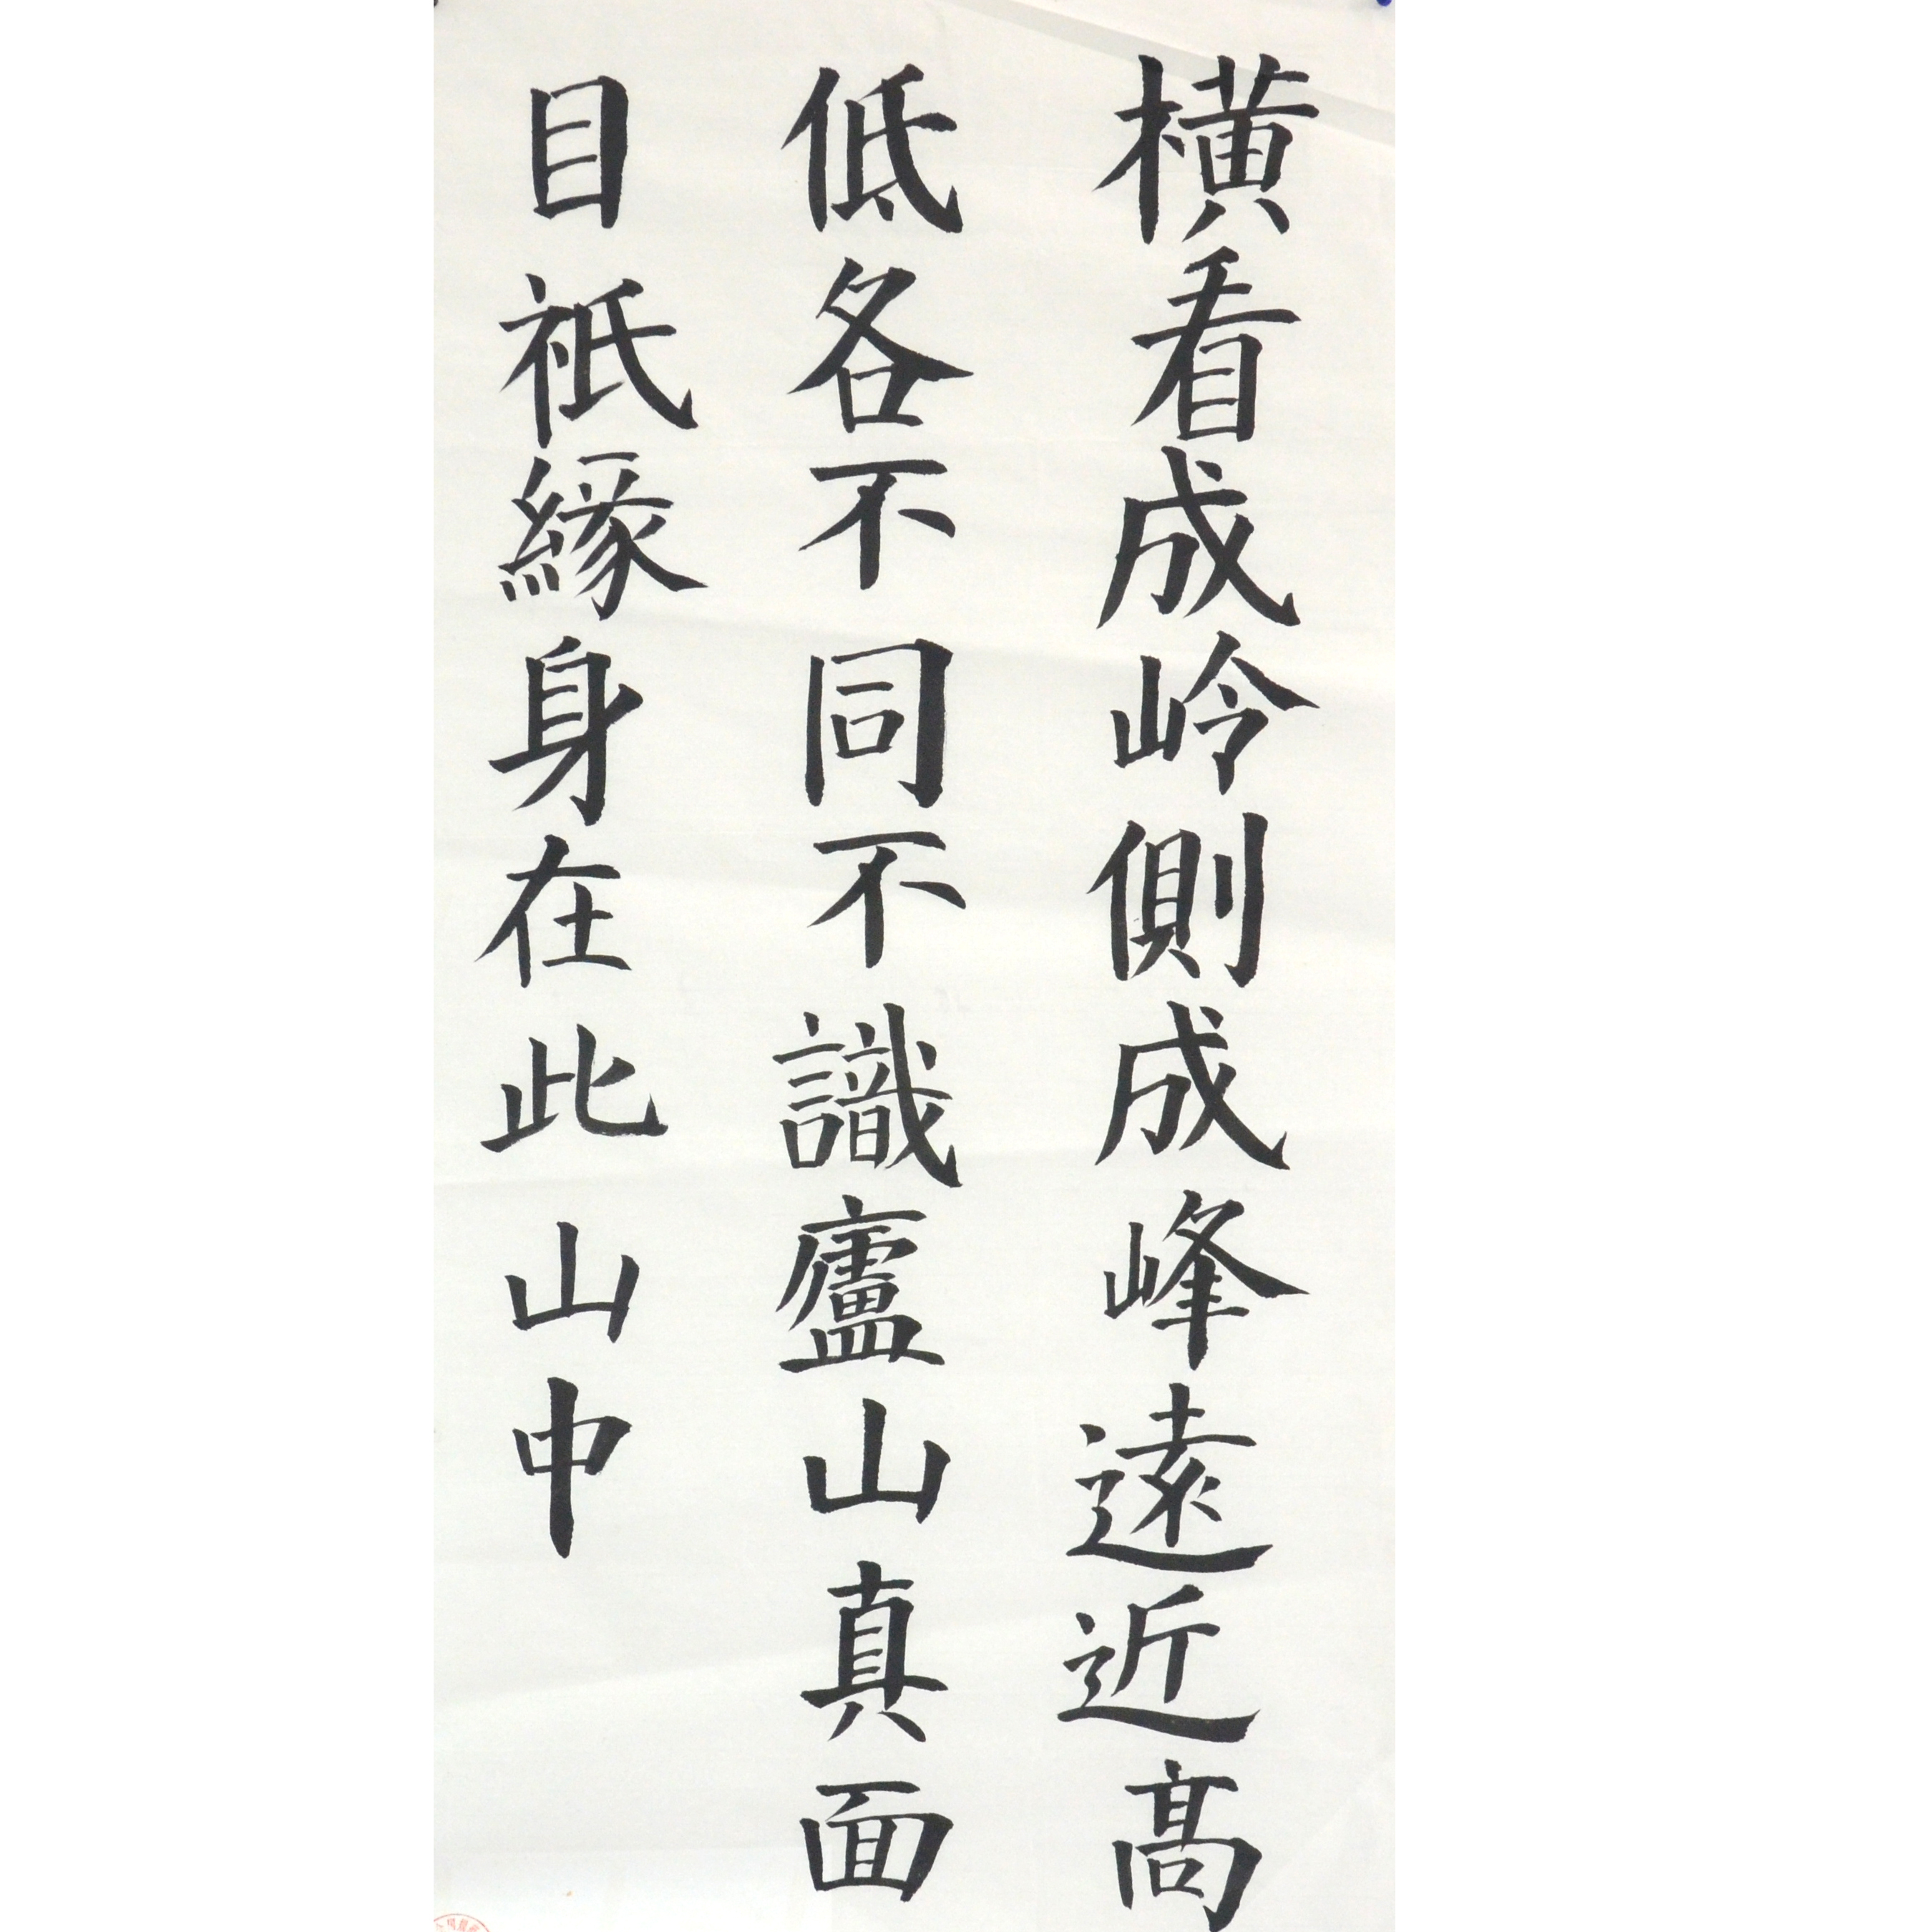 橫看成岭側成峰遠近高
低各不同不識廬山真面
目衹緣身在此山中